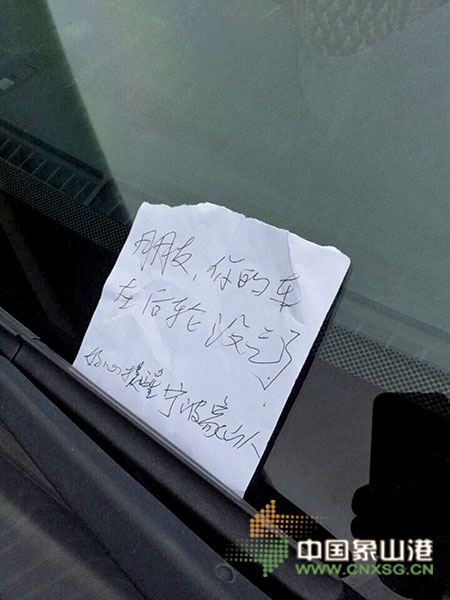 朋友,你的车
左后轮没气了
好心提醒宁波象山人
中国象山港
WWW.CNXSG.CN